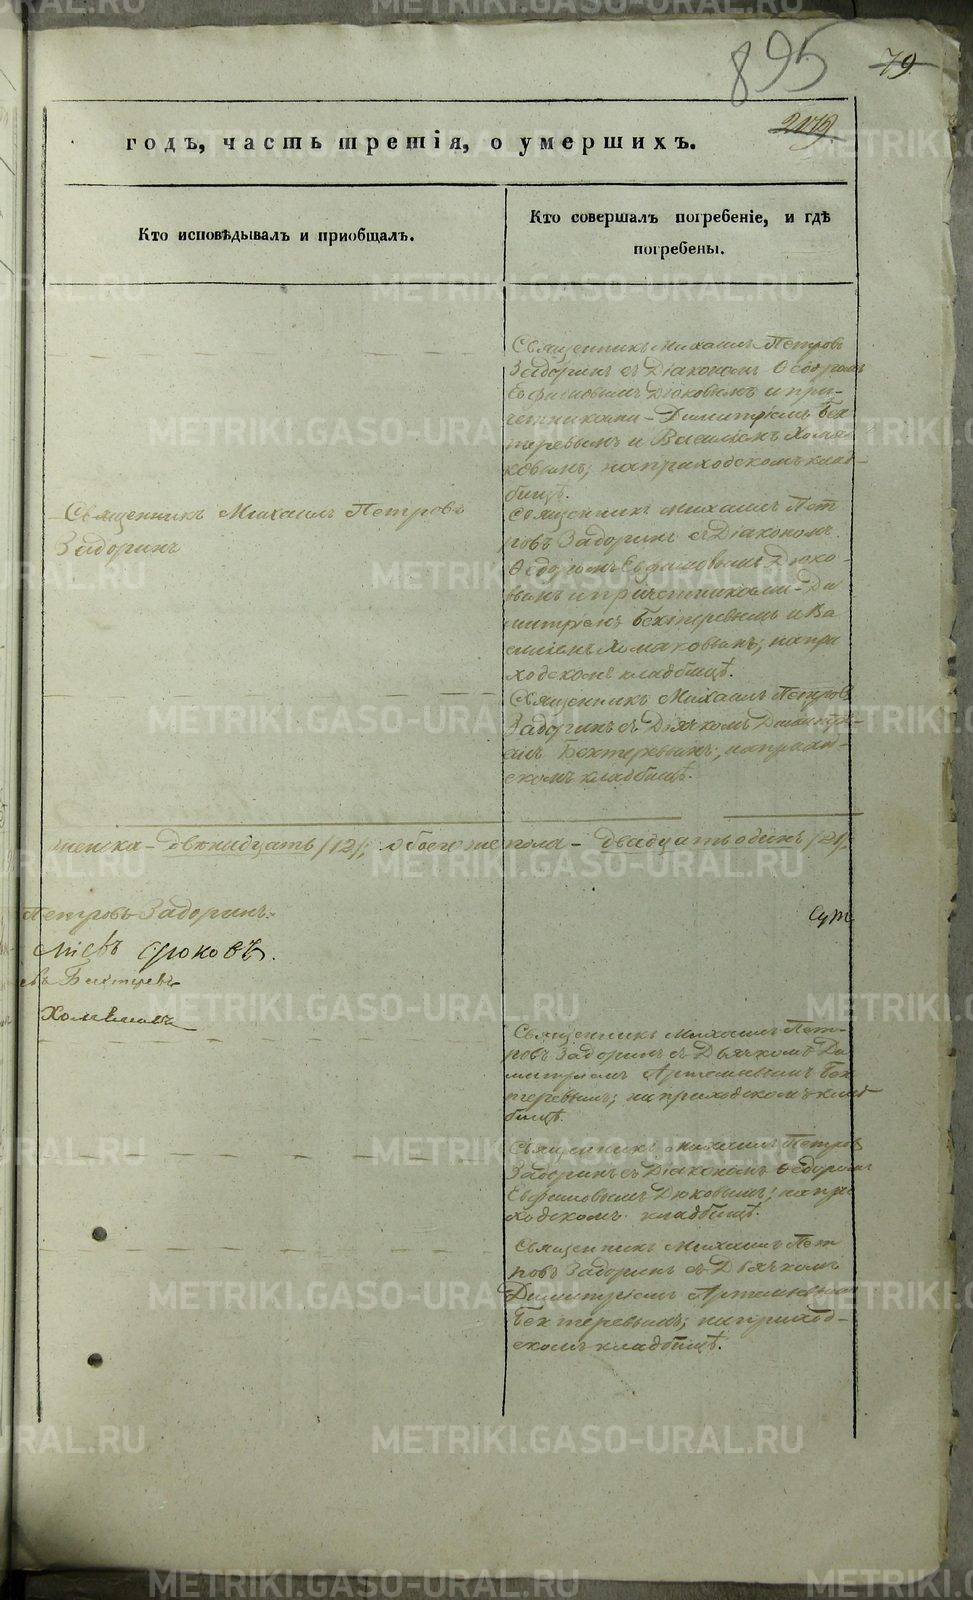 895
79
2179
годъ, часть третія, о умершихъ.
Кто исповѣдывалъ и пріобщалъ.
Кто совершалъ погребеніе, и гдѣ
погребены.
Священникъ Михаилъ Петровъ
Задоринъ съ Діакономъ Ѳеодоромъ
Евфимовымъ Дюковымъ и при-
четниками - Димитріемъ Бех
теревымъ и Василіемъ
на приходскомъ клад-
бищѣ.
Священникъ Михаилъ Петровъ
Задоринъ
Священникъ Михаилъ Пет
ровъ Задоринъ съ Діакономъ
Ѳедоромъ Евфимовымъ Дюко-
вымъ и причетниками - Ди
митріемъ Бехтеревымъ и Ва
силіемъ Хомяковымъ; на при
ходскомъ кладбищѣ.
Священникъ Михаилъ Петровъ
Задоринъ съ Дьячкомъ Димитрі-
емъ Бехтеревымъ;
скомъ кладбищѣ.
женска - двѣнадцать /12/; обоего же пола - двадцать одинъ /21/.
Петровъ Задоринъ.
Дюковъ.
въ Бехтеревъ
Хомяковъ
Священникъ Михаилъ Пет-
ровъ Задоринъ съ Дьячкомъ Ди
митріемъ Артемьевымъ Бех
теревымъ; на приходскомъ клад
бищѣ.
Священникъ Михаилъ Петровъ
Задоринъ съ Діакономъ Ѳедоромъ
Евфимовымъ Дюковымъ; на при
ходскомъ кладбищѣ.
Священникъ Михаилъ Пет
ровъ Задоринъ съ Дьячкомъ
Димитріемъ Артемьевымъ
Бехтеревымъ; на приход-
скомъ кладбищѣ.
METRIKI.GASO-URAL.RU